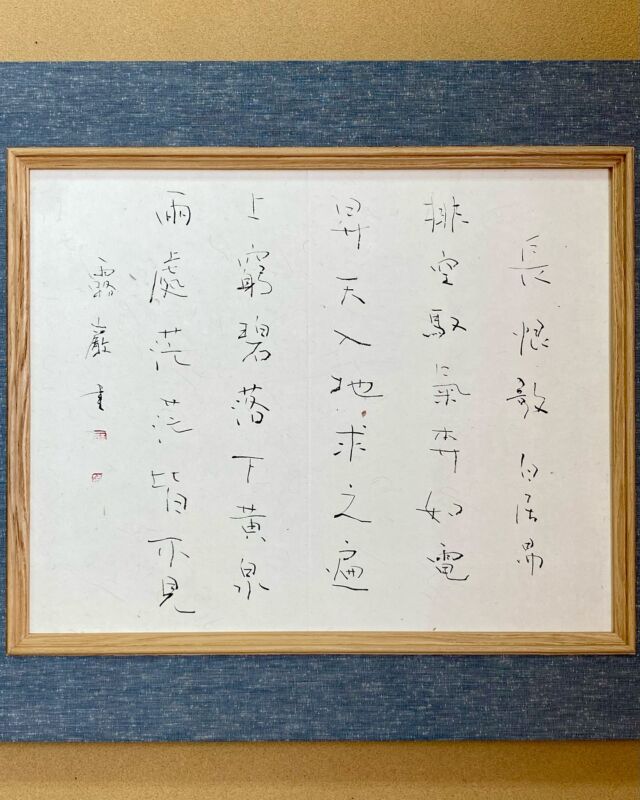 長恨歌 白居易
排空馭氣奔如電
昇天入地求之遍
上窮碧落下黃泉
兩處茫茫皆不見
巖書